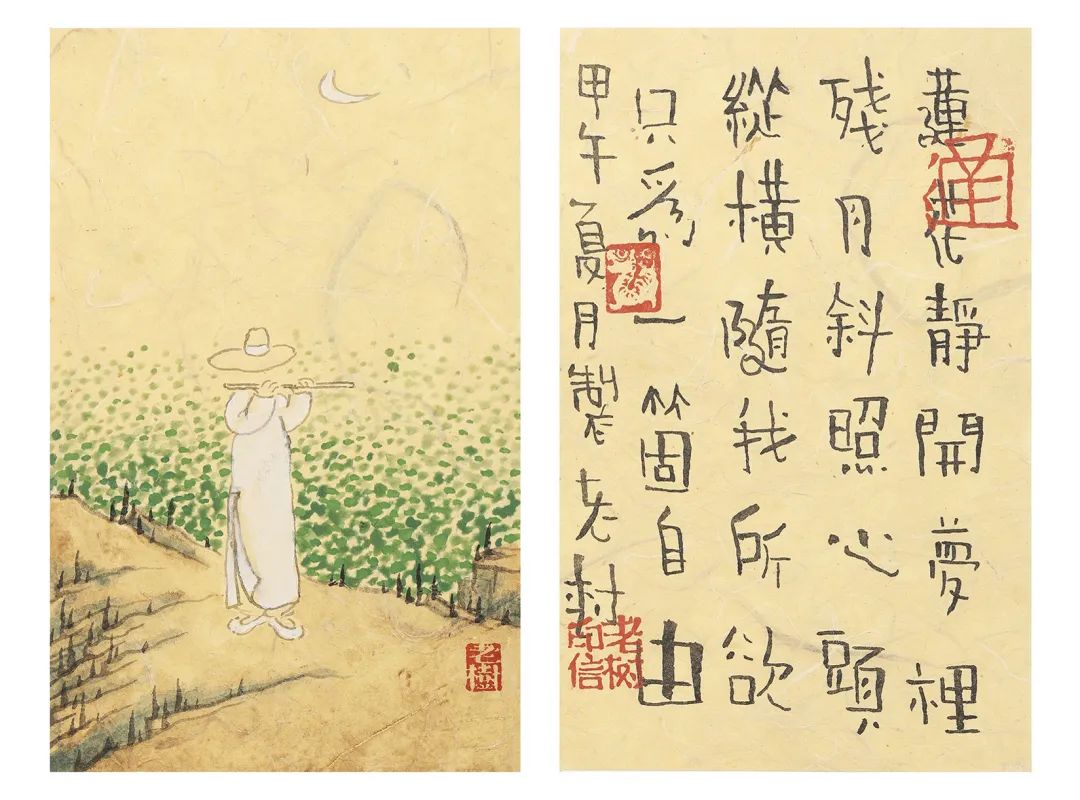 老樹
蓮花靜開夢裡
殘月斜照心頭
縱橫隨我所欲
只爲一箇自由
甲午夏月製老
老树印信